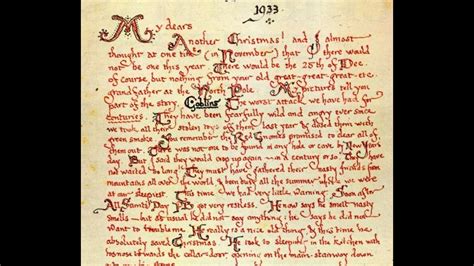 1933
My dears
Another Christmas! and I almost
thought at one time (in November) that there would
not be one this year. There would be the 25th of Dec.
of course but nothing from your old great-great-great-etc.
grandfather at the North Pole. My pictures tell you
part of the story. Goblins. The worst attack we have had for
centuries. They have been fearfully wild and angry ever since
we took all their stolen toys off them last year & dosed them with
green smoke. You remember the Red Gnomes promised to clear all of
them out. There was not one to be found in any hole or cave by New Year's
day. But I said they would crop up again — in a century or so. They have
not waited so long! They must have gathered their nasty friends from
mountains all over the world & been busy all the summer while we were
at our sleepiest. This time we had very little warning. Soon after
All Saints' Day PB got very restless. He now says he smelt nasty
smells — but as usual he did not say anything: he says he did not
want to trouble me. He really is a nice old thing, & this time he
absolutely saved Christmas. He took to sleeping in the kitchen with
his nose towards the cellar-door opening on the main-stairway down